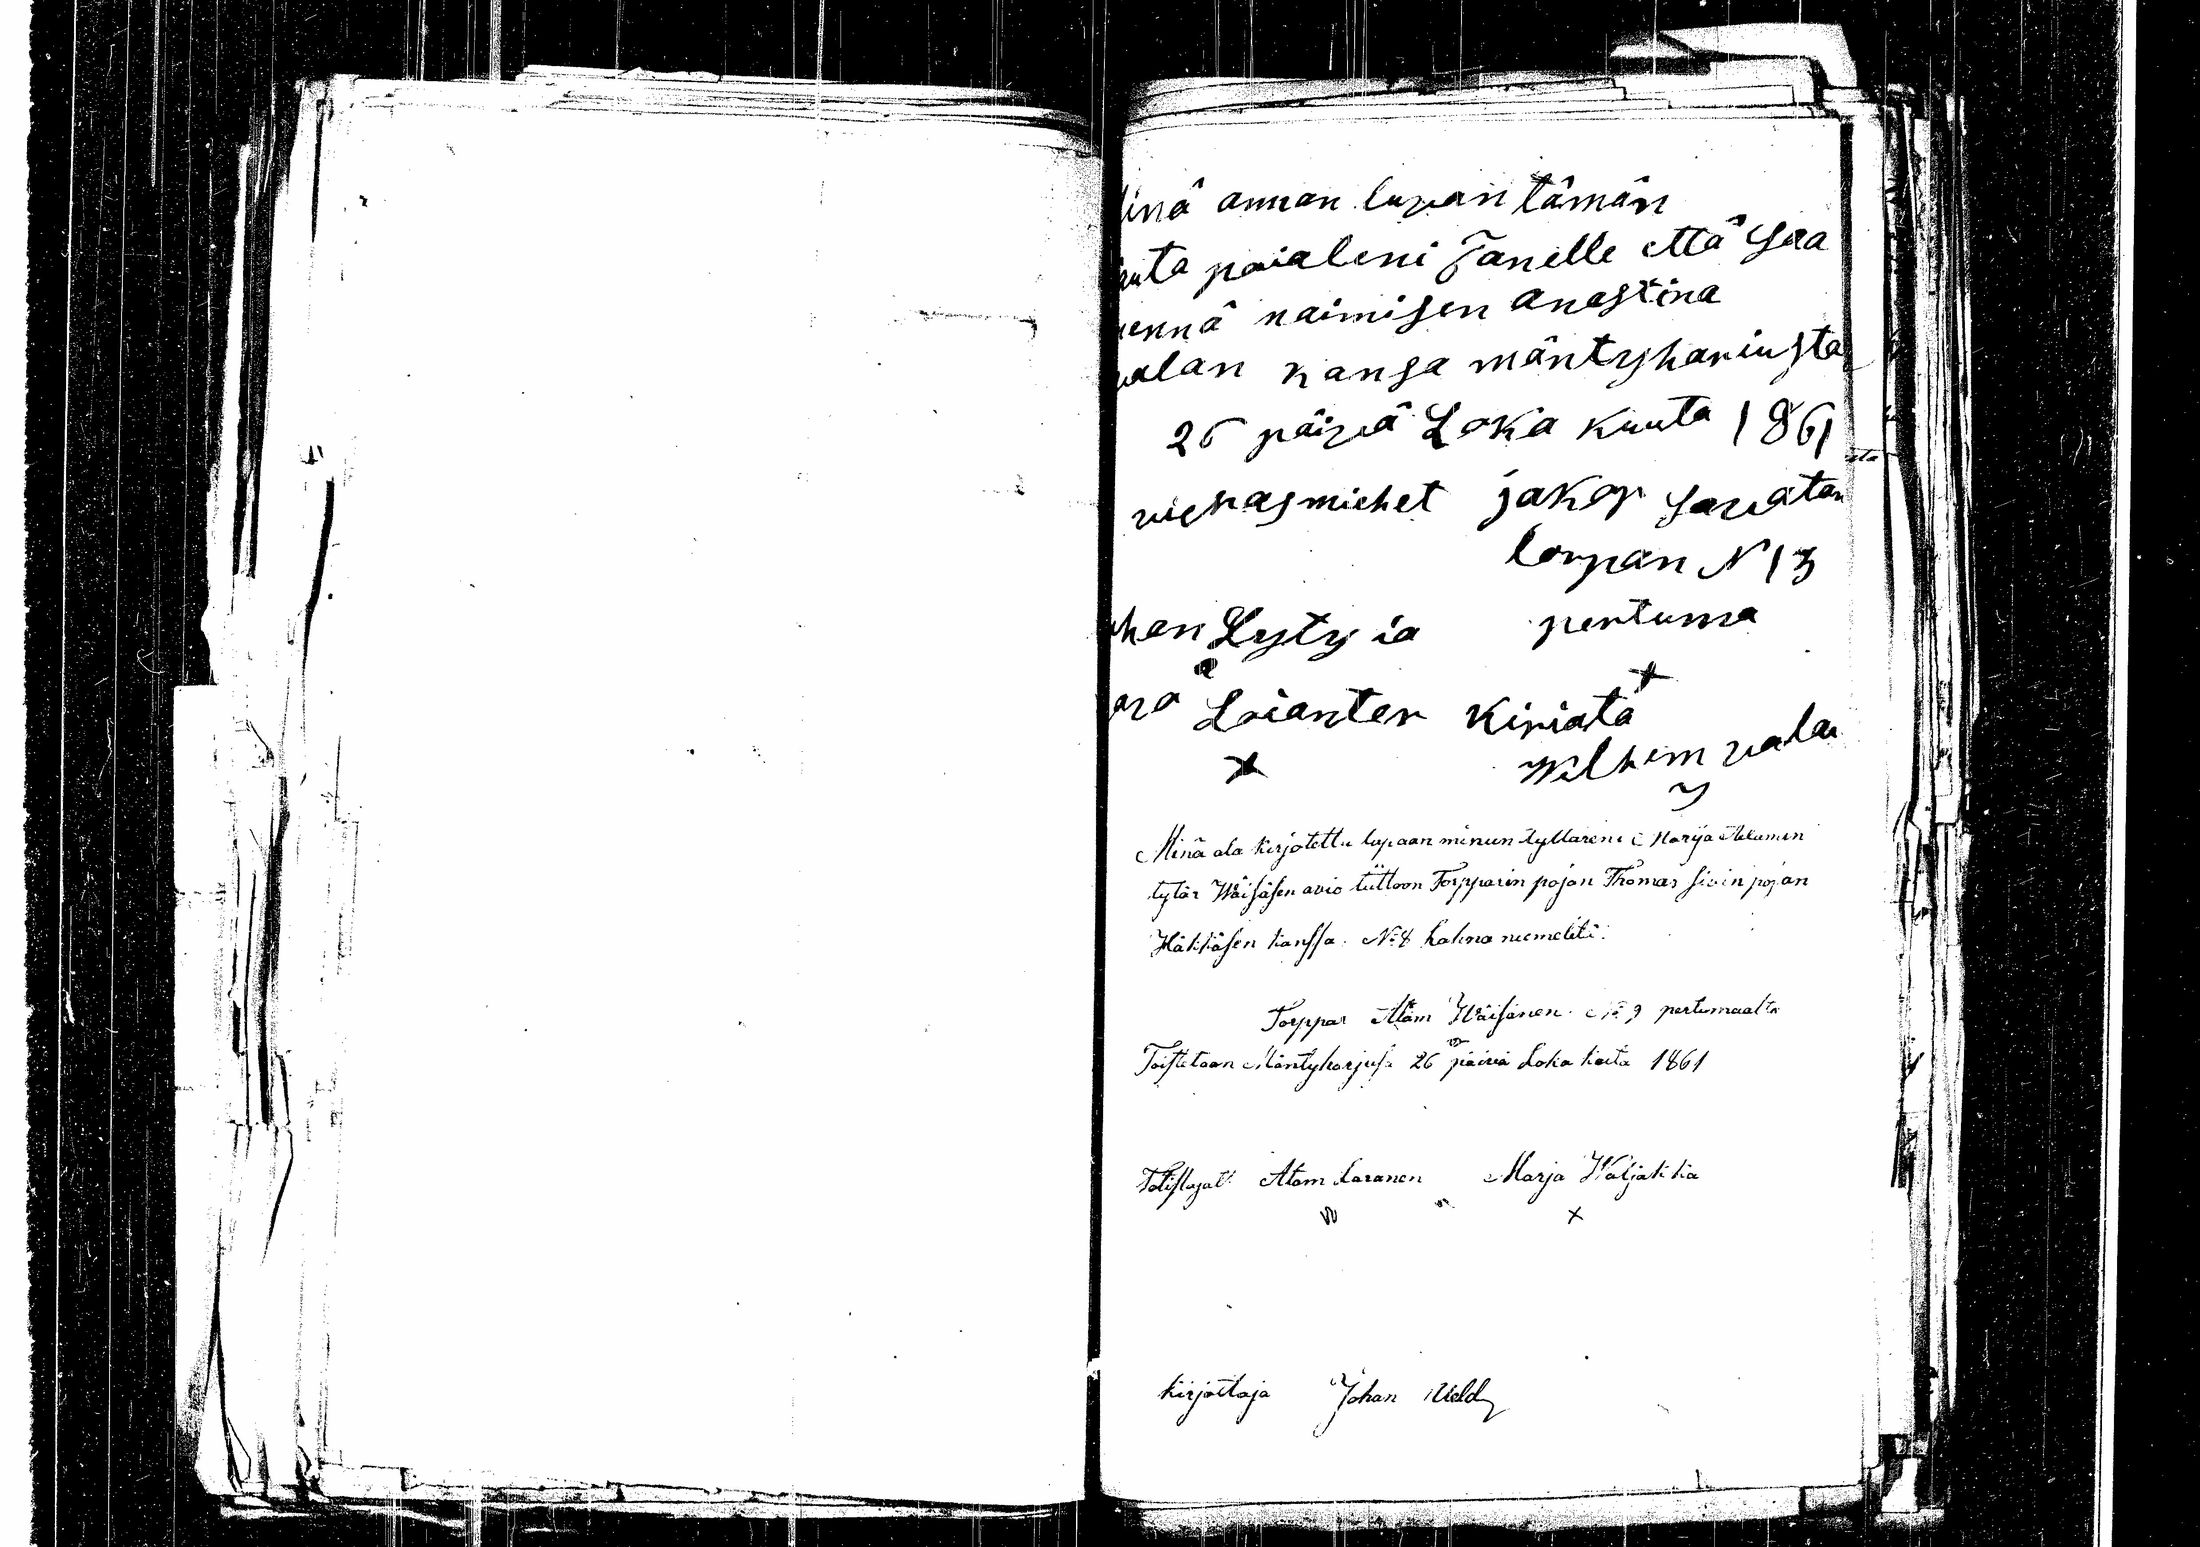 inä annan lupan tämän
uta poialeni Janelle että saa
ennä naimisen anastina
valan kansa mäntyhariusta
26 päivä Loka kuuta 1861
vierasmiehet jakop savatan
lorpan N 13
han Lyty ia pertuma
Loianter kiriatä
Wilhem valan
Minä ala kirjotettu lupaan minun tyttäreni Marija Atamin
tytär Wäisäsen avio liittoon Torpparin pojan Thomas sivin pojan
Häkkäsen kanssa. No 8 halna niemeltä.
Torppar Atam Wäisänen. No 9 pertumaalta
Toistetaan Mäntyharjusa 26 päivä Loka kuta 1861
Totistajat Atam Laranen Marja Waljakka
kirjottaja Johan